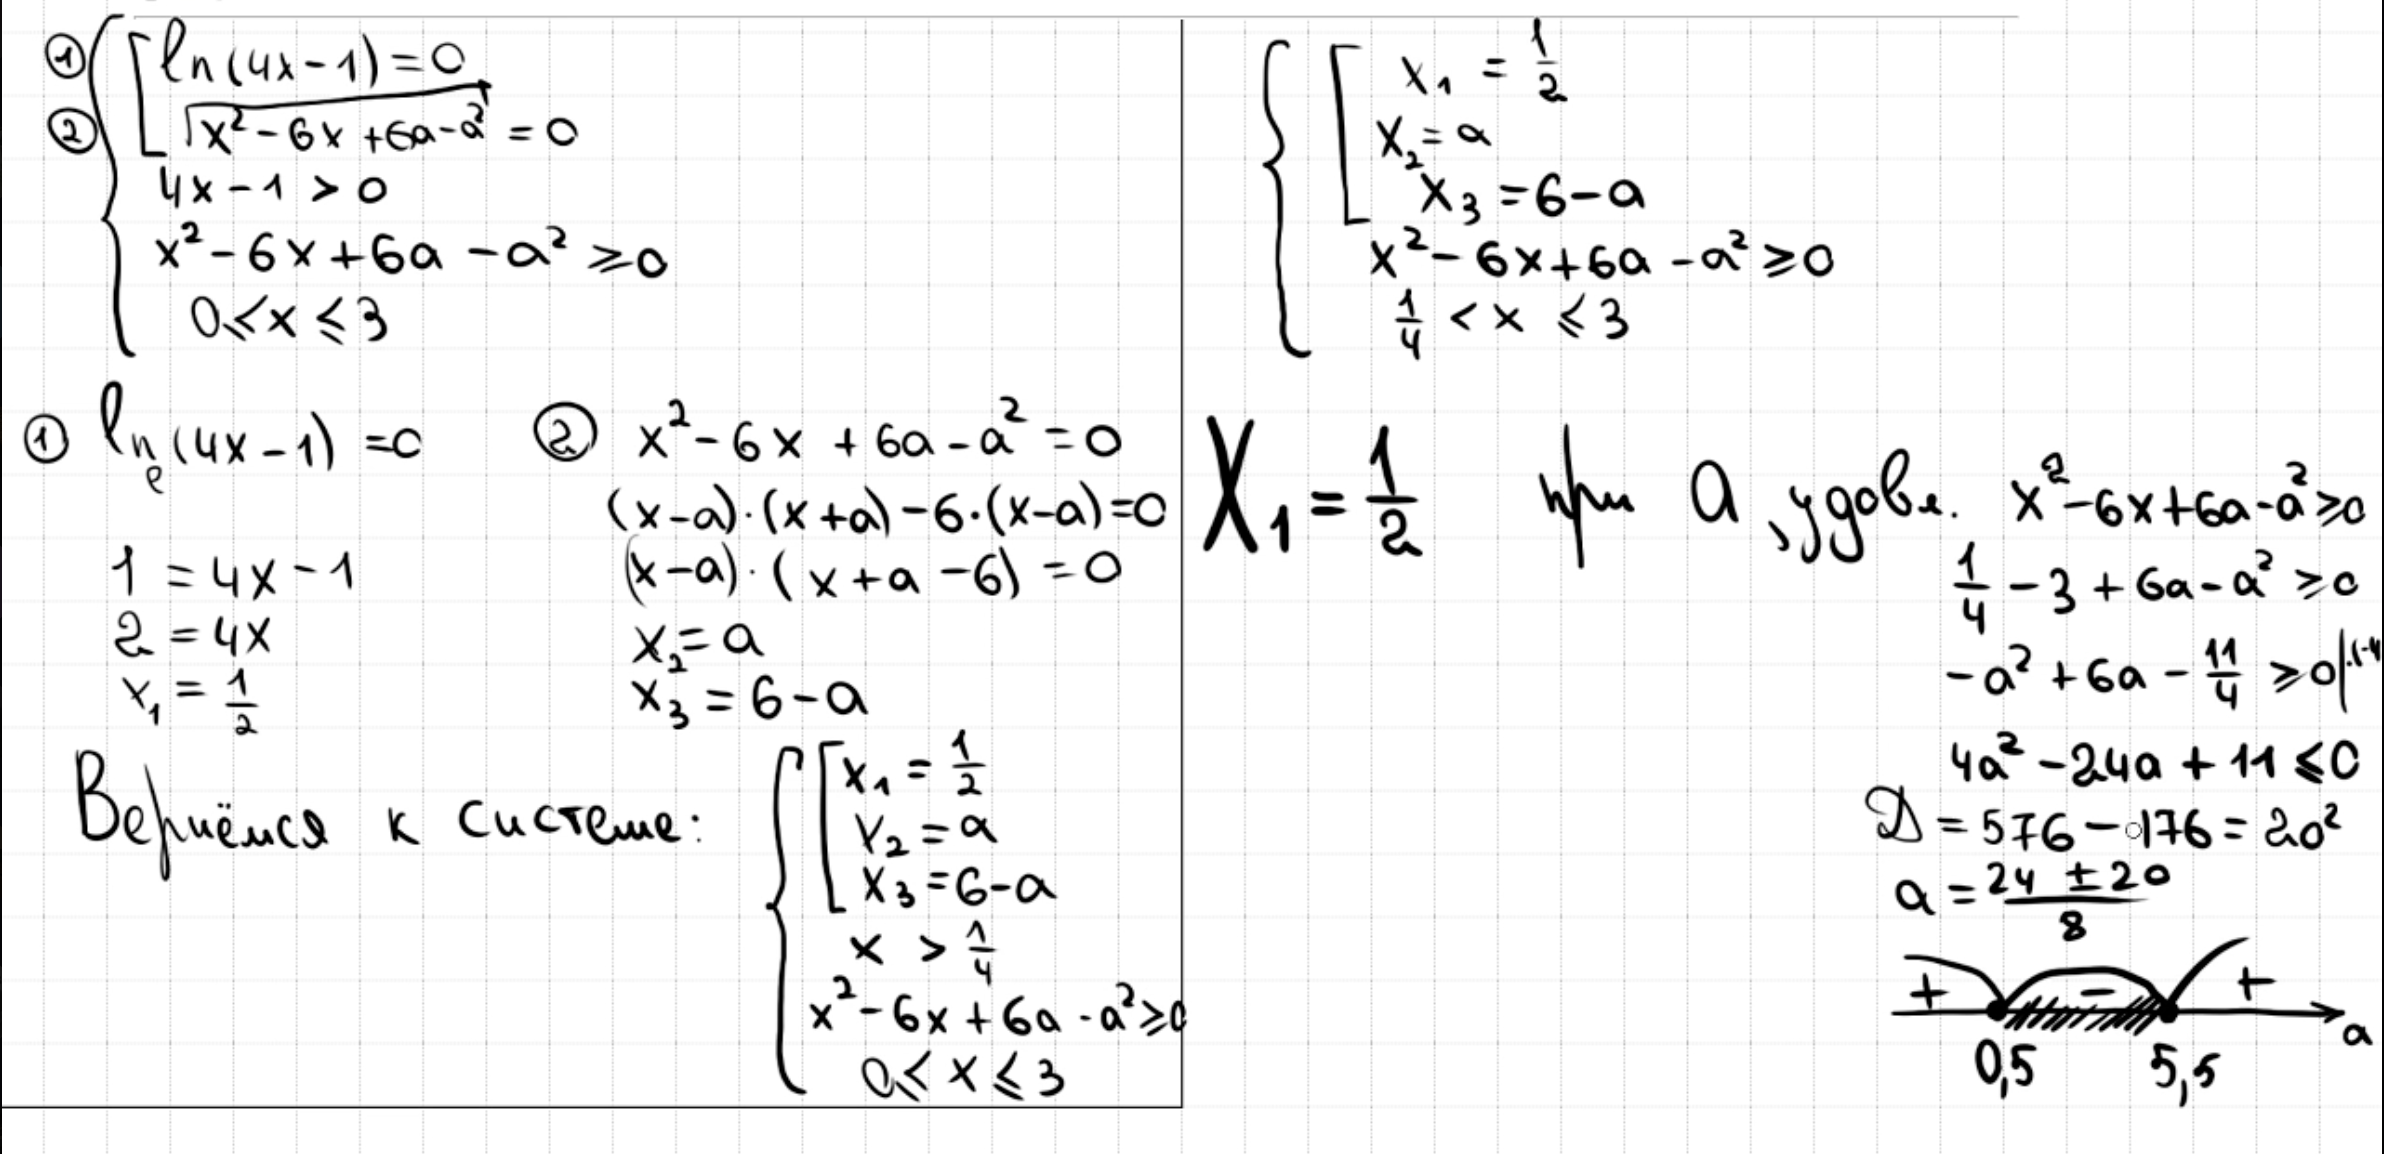 ① ln(4x-1)=0
② √(x²-6x+6a-a²) = 0
4x-1 > 0
x²-6x+6a-a² ⩾ 0
0 ⩽ x ⩽ 3
① lnₑ(4x-1) = 0
1 = 4x-1
2 = 4x
x₁ = 1/2
② x²-6x+6a-a² = 0
(x-a)·(x+a)-6·(x-a)=0
(x-a)·(x+a-6) = 0
x₂ = a
x₃ = 6-a
Вернёмся к системе:
x₁ = 1/2
x₂ = a
x₃ = 6-a
x > 1/4
x²-6x+6a-a² ⩾ 0
0 ⩽ x ⩽ 3
x₁ = 1/2
x₂ = a
x₃ = 6-a
x²-6x+6a-a² ⩾ 0
1/4 < x ⩽ 3
X₁ = 1/2 при a, удовл. x²-6x+6a-a² ⩾ 0
1/4 - 3 + 6a - a² ⩾ 0
-a² + 6a - 11/4 ⩾ 0 |·(-4
4a² - 24a + 11 ⩽ 0
D = 576 - 176 = 20²
a = (24 ± 20)/8
+ - +
0,5 5,5 a